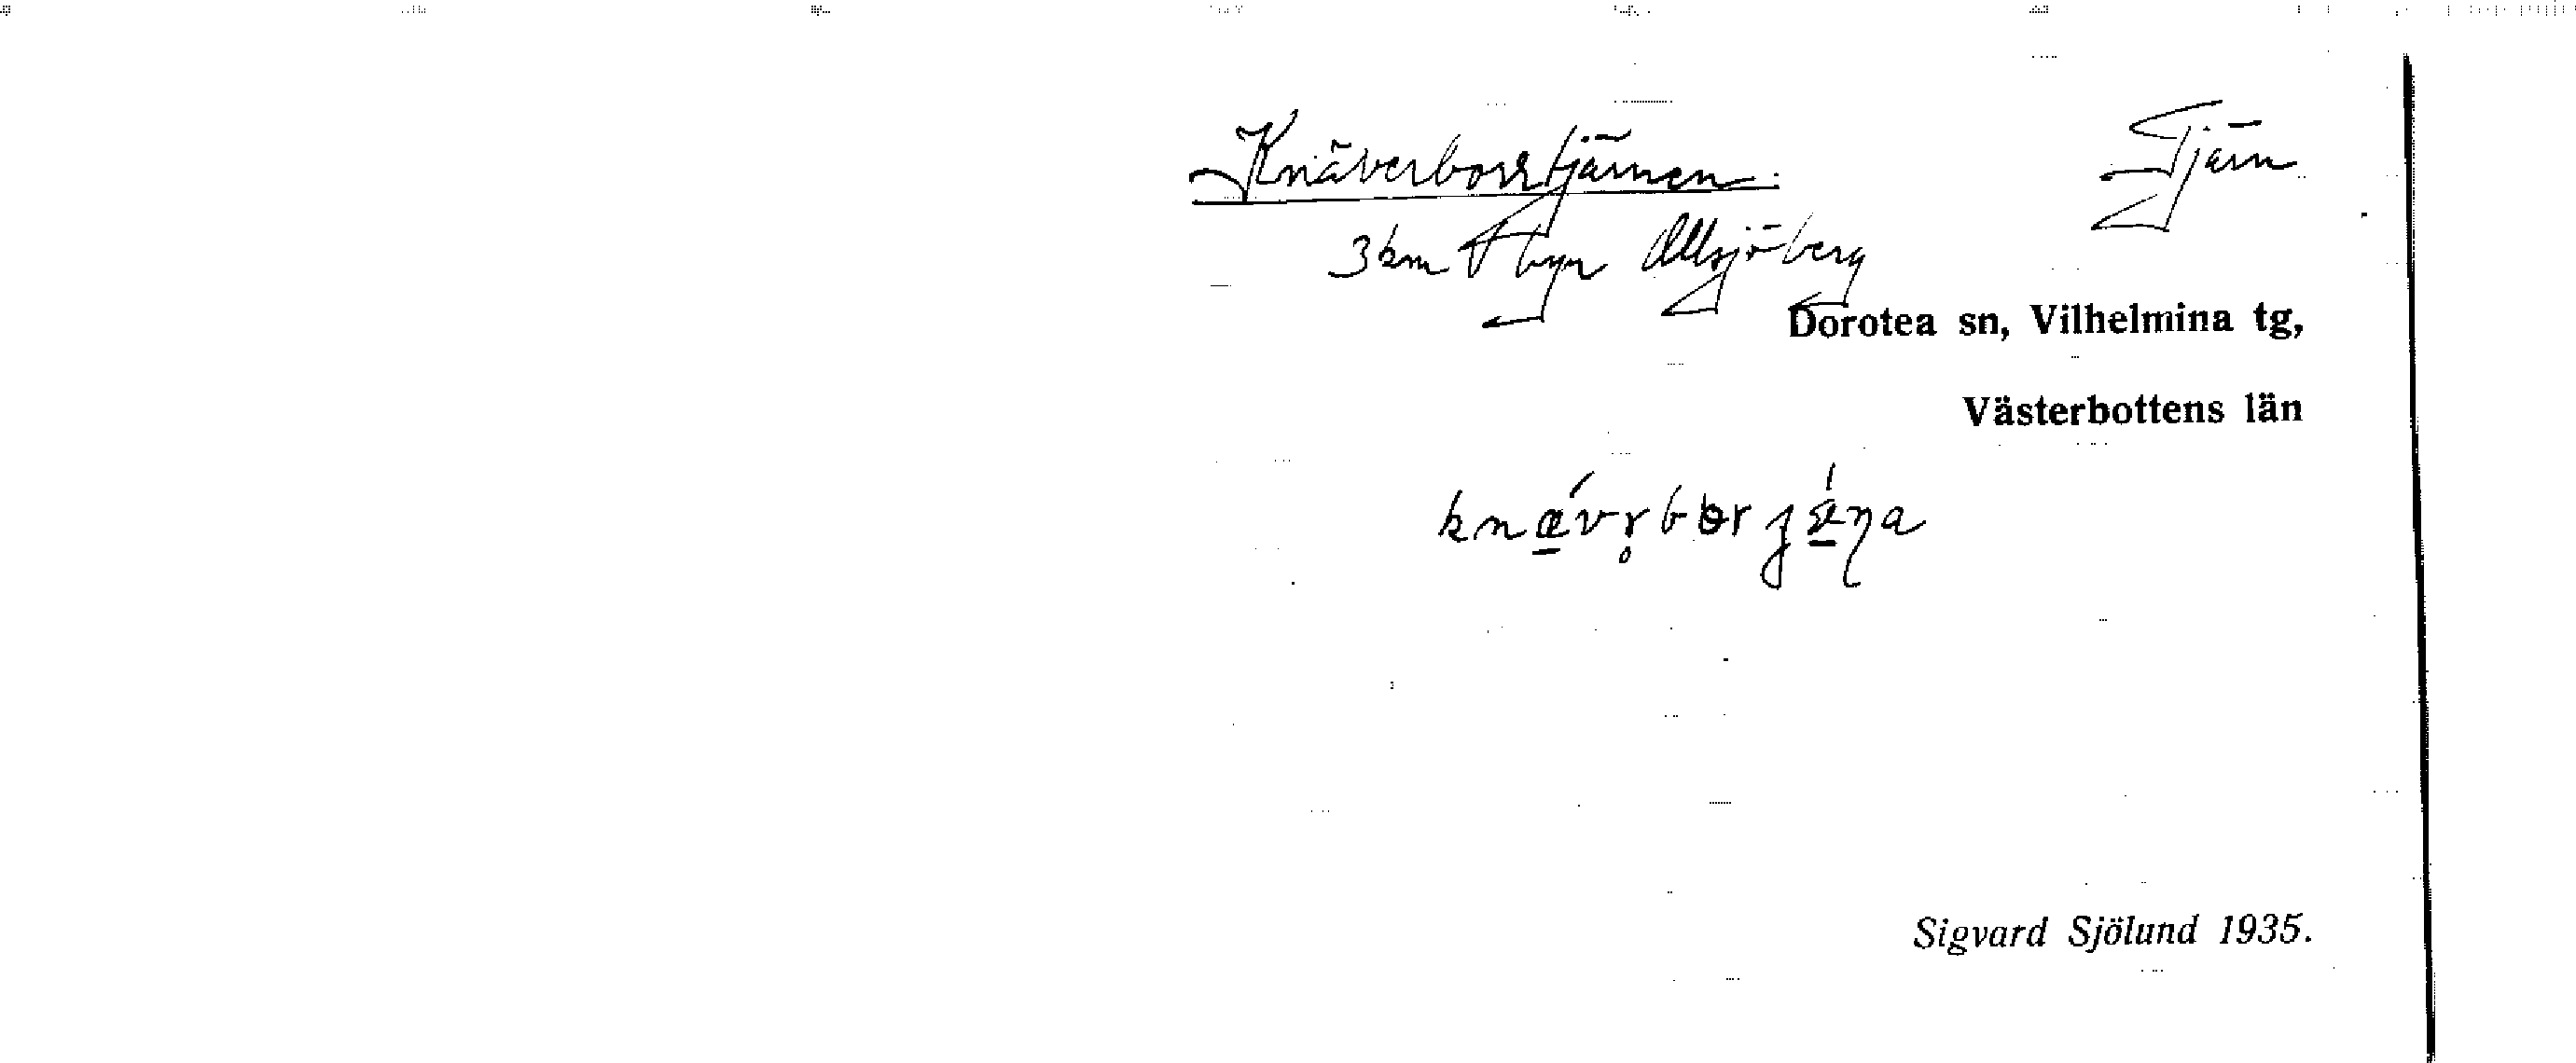 Knäverborrtjärnen. Tjärn
3 km byn Allsjöberg
Dorotea sn, Vilhelmina tg,
Västerbottens län
Sigvard Sjölund 1935.